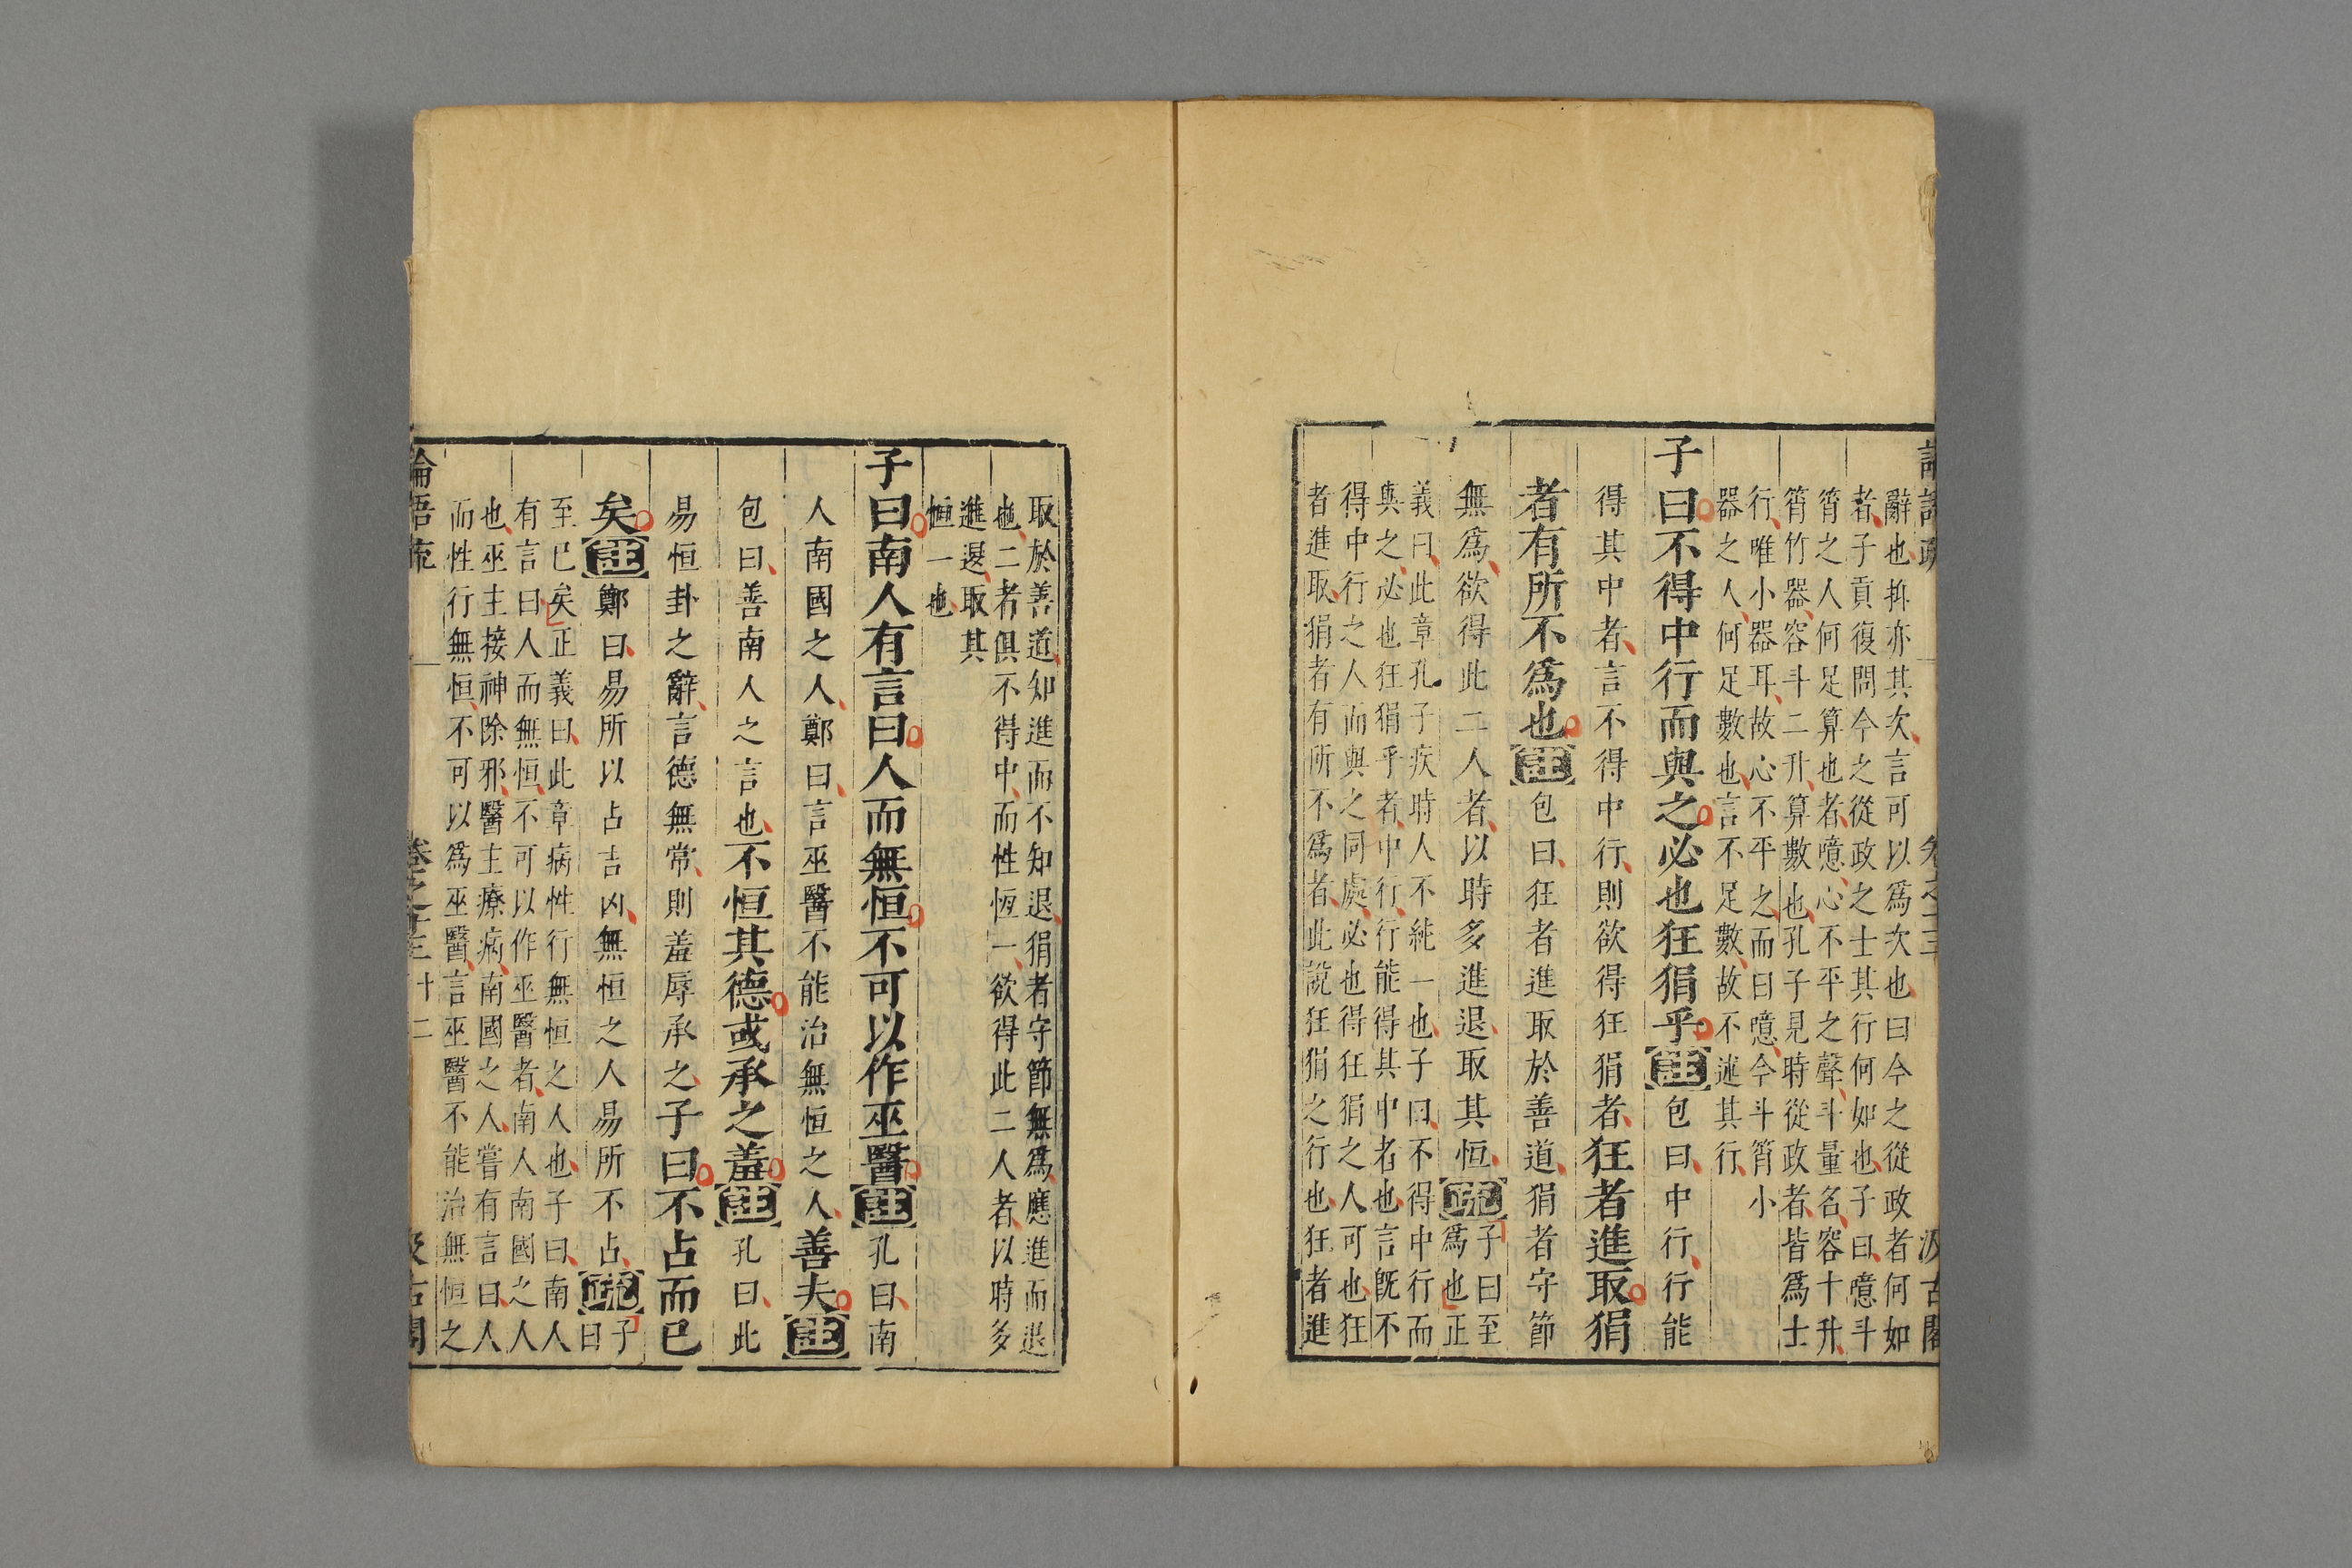 辭也抑亦其次言可以爲次也曰今之從政者何如
者子貢復問今之從政之士其行何如也子曰噫斗
筲之人何足算也者噫心不平之聲斗量名容十升
筲竹器容斗二升算數也孔子見時從政者皆爲士
行唯小器耳故心不平之而曰噫今斗筲小
器之人何足數也言不足數故不述其行
子曰不得中行而與之必也狂狷乎註包曰中行行能
得其中者言不得中行則欲得狂狷者狂者進取狷
者有所不爲也註包曰狂者進取於善道狷者守節
無爲欲得此二人者以時多進退取其恒疏子曰至
爲也正
義曰此章孔子疾時人不純一也子曰不得中行而
與之必也狂狷乎者中行行能得其中者也言旣不
得中行之人而與之同處必也得狂狷之人可也狂
者進取狷者有所不爲者此說狂狷之行也狂者進
取於善道知進而不知退狷者守節無爲應進而退
也二者俱不得中而性恆一欲得此二人者以時多
進退取其
恒一也
子曰南人有言曰人而無恒不可以作巫醫註孔曰南
人南國之人鄭曰言巫醫不能治無恒之人善夫註
包曰善南人之言也不恒其德或承之羞註孔曰此
易恒卦之辭言德無常則羞辱承之子曰不占而已
矣註鄭曰易所以占吉凶無恒之人易所不占疏子
曰
至已矣正義曰此章疾性行無恒之人也子曰南人
有言曰人而無恒不可以作巫醫者南人南國之人
也巫主接神除邪醫主療病南國之人嘗有言曰人
而性行無恒不可以爲巫醫言巫醫不能治無恒之
論語疏 卷之十三 十二 汲古閣